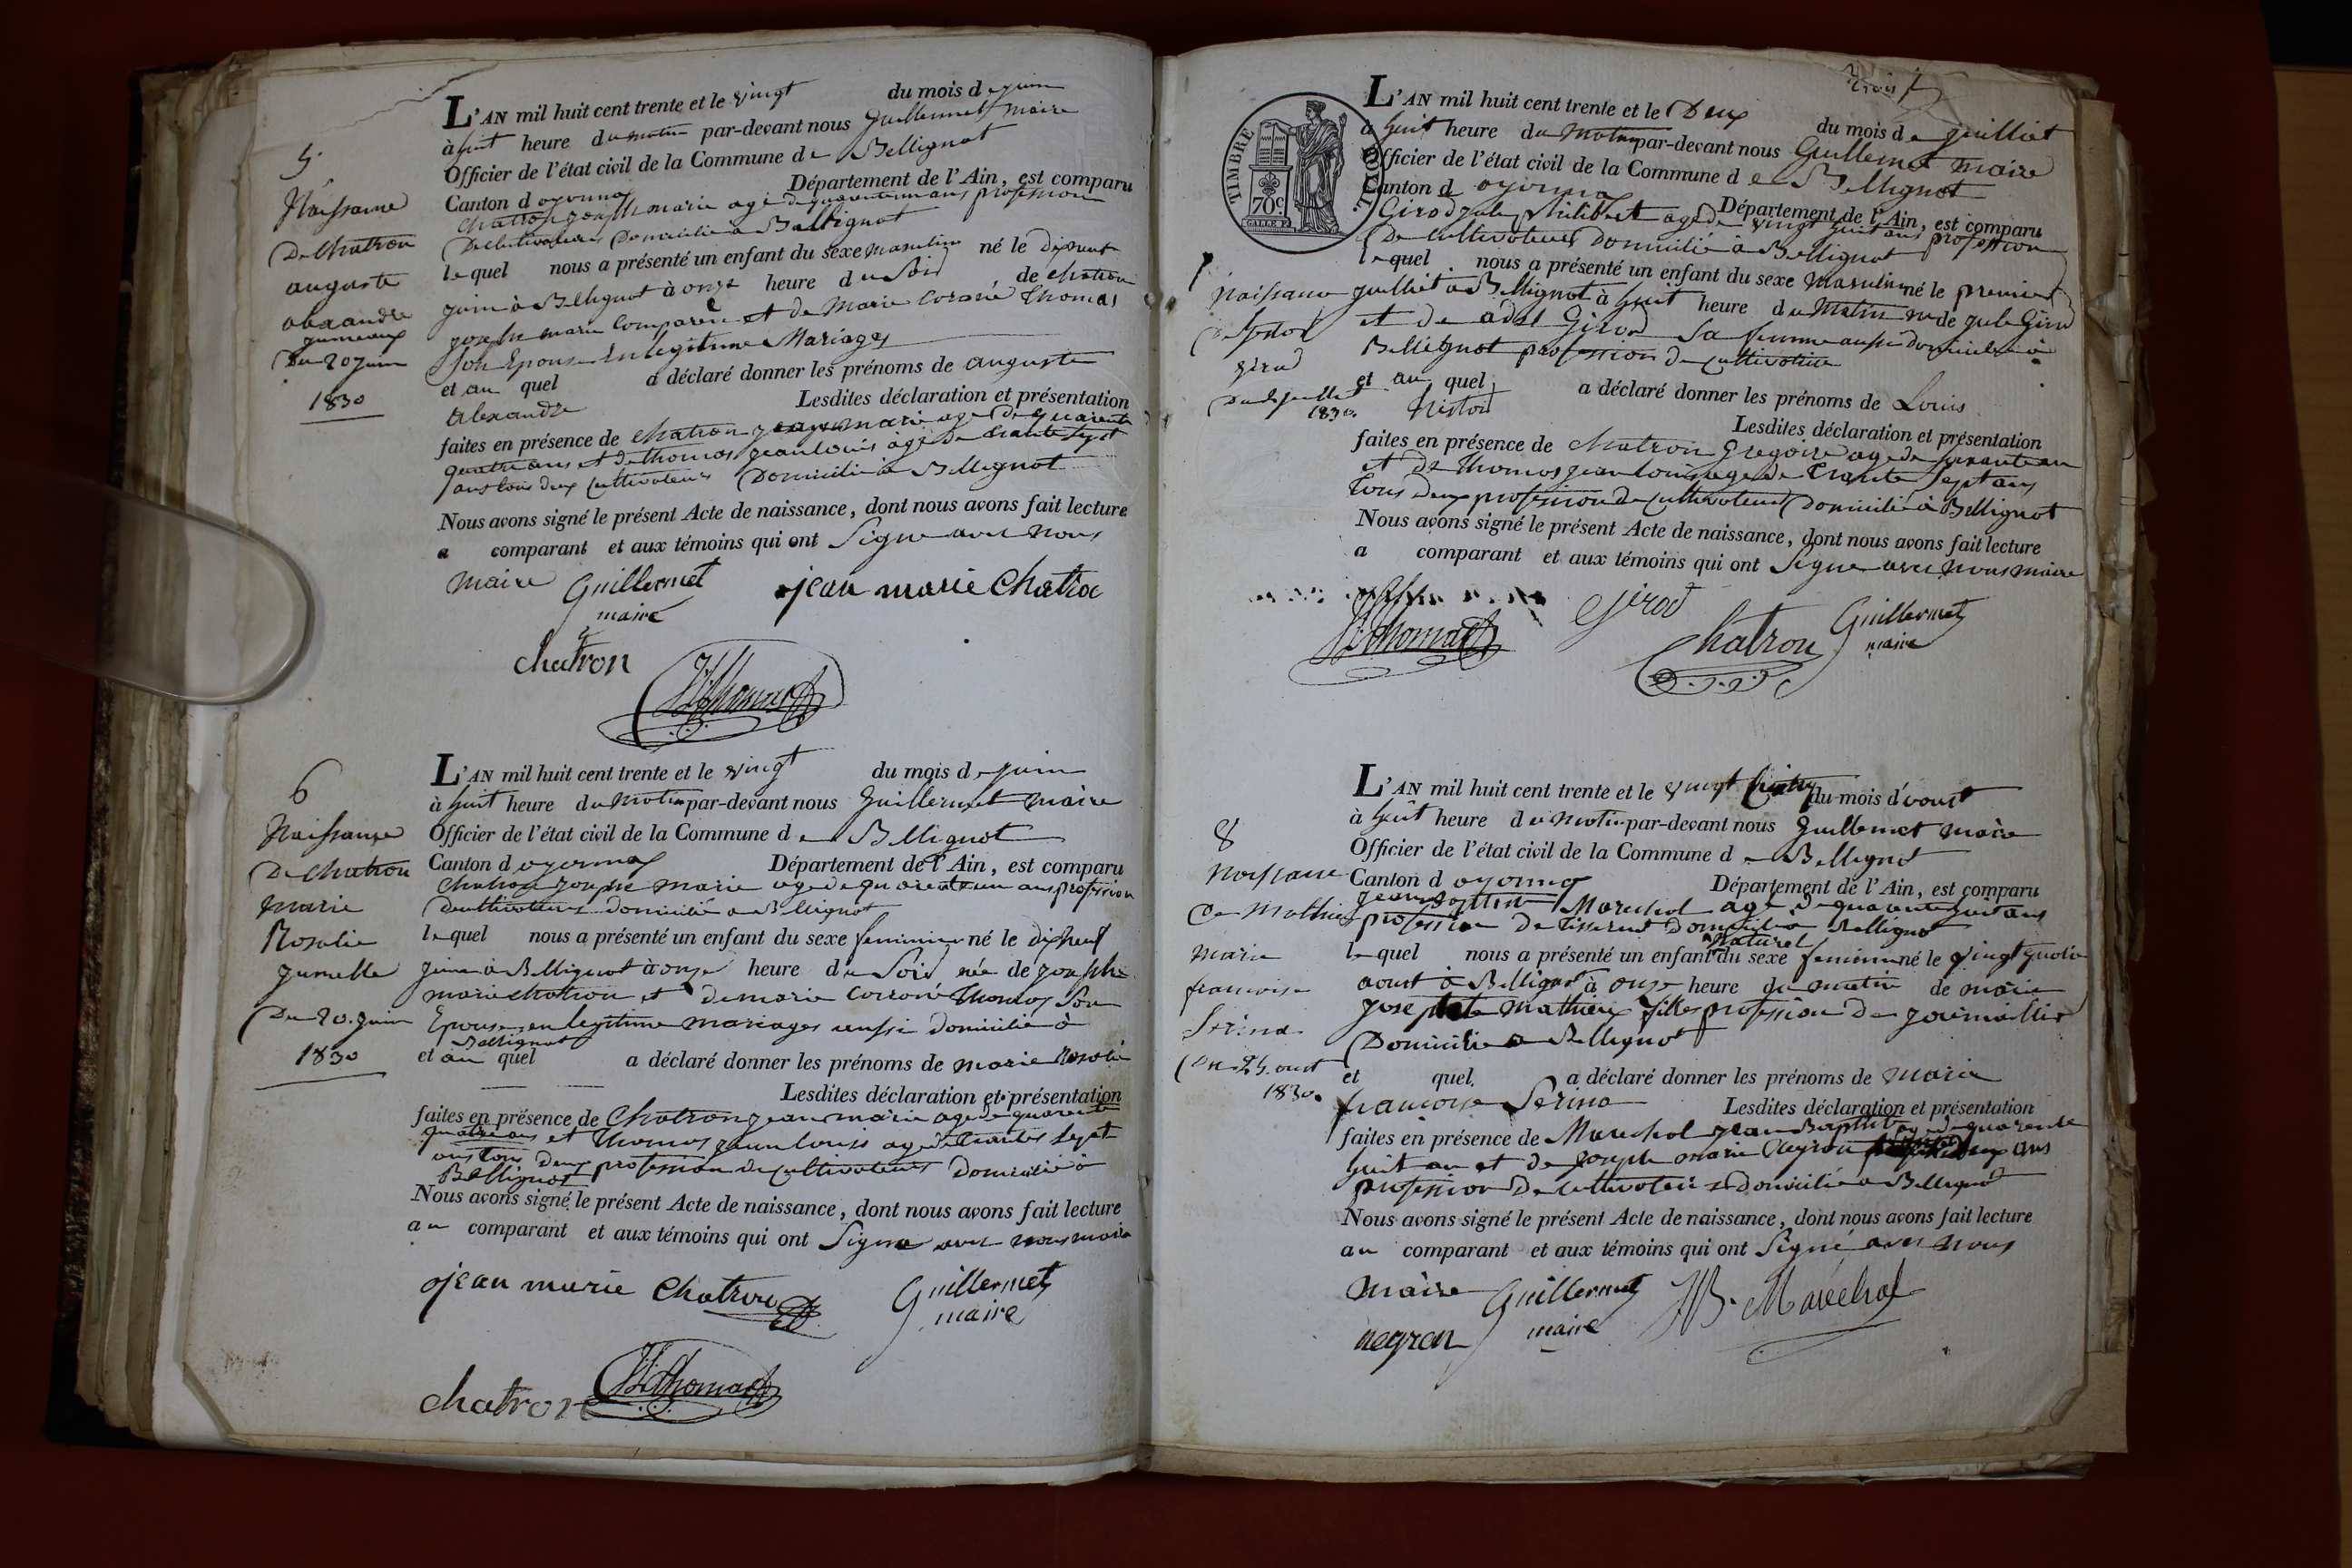 5
Naissance
De chatron
auguste
alexandre
jumeaux
Du 20 juin
1830
L'AN mil huit cent trente et le vingt du mois de juin
à huit heure du matin par-devant nous Guillermet maire
Officier de l'état civil de la Commune de Bellignat
Canton d oyonnax Département de l'Ain, est comparu
chatron joseph marie agé de quarante un ans profession
De cultivateur Domicilié a Bellignat
lequel nous a présenté un enfant du sexe masculin né le dixneuf
juin à Bellignat à onze heure du Soir de chatron
joseph marie Comparen et de Marie Thomas
Son Epouse En legitime Mariages
et au quel a déclaré donner les prénoms de auguste
alexandre Lesdites déclaration et présentation
faites en présence de chatron jean marie agé de quarante
quatre ans et de thomas jean louis agé de trante sept
ans tous deux cultivateurs Domicilié à Bellignat
Nous avons signé le présent Acte de naissance, dont nous avons fait lecture
a comparant et aux témoins qui ont Signe avec nous
maire Guillermet jean marie Chatron
maire
chatron
JLThomas
6
Naissance
De chatron
Marie
Rosalie
jumelle
Du 20 juin
1830
L'AN mil huit cent trente et le vingt du mois de juin
à huit heure du matin par-devant nous Guillermet maire
Officier de l'état civil de la Commune de Bellignat
Canton d oyonnax Département de l'Ain, est comparu
Chatron joseph marie agé de quarante un ans profession
De cultivateur domicilié a Bellignat
lequel nous a présenté un enfant du sexe feminin né le dixneuf
juin à Bellignat à onze heure du Soir née de joseph
marie chatron et de marie Thomas Son
Epouse en legitime mariages aussi domicilié à
Bellignat
et au quel a déclaré donner les prénoms de marie Rosalie
Lesdites déclaration et présentation
faites en présence de Chatron jean marie agé de quarente
quatre ans et Thomas jean louis agé de trante sept
ans tous deux profession de cultivateurs domicilié à
Bellignat
Nous avons signé le présent Acte de naissance, dont nous avons fait lecture
au comparant et aux témoins qui ont Signe avec nous maire
jean marie Chatron Guillermet
maire
chatron JLThomas
trois
TIMBRE ROYAL
70c
7
Naissance
De
Girod
Du 2 juillet
1830.
L'AN mil huit cent trente et le Deux du mois de juilliet
à huit heure du matin par-devant nous Guillermet maire
Officier de l'état civil de la Commune de Bellignat
Canton d oyonnax Département de l'Ain, est comparu
Girod jule philibert agé de vingt huit ans profession
De cultivateur Domicilié à Bellignat
lequel nous a présenté un enfant du sexe masculin né le premier
juilliet a Bellignat à huit heure du Matin de jule Girod
et de Girod sa femme aussi domicilié à
Bellignat profession de cultivatrice
et au quel a déclaré donner les prénoms de Louis
Lesdites déclaration et présentation
faites en présence de chatron Gregoire agé de
et de Thomas jean louis agé de trante sept ans
tous deux profession de cultivateurs Domicilié à Bellignat
Nous avons signé le présent Acte de naissance, dont nous avons fait lecture
a comparant et aux témoins qui ont Signe avec nous maire
JLThomas Girod Chatron Guillermet
maire
8
Naissance
De Mathieu
Marie
francoise
Serina
Du 25 oust
1830.
L'AN mil huit cent trente et le vingt du mois d'voust
à huit heure du matin par-devant nous Guillermet maire
Officier de l'état civil de la Commune de Bellignat
Canton d oyonnax Département de l'Ain, est comparu
jean Baptiste Marechal agé de quarante huit ans
profession de tisserand domicilié à Bellignat
naturel
lequel nous a présenté un enfant du sexe feminin né le vingt quatre
aoust à Bellignat à onze heure du matin de marie
josephte Mathieu fille profession de journallier
Domicilié a Bellignat
et quel a déclaré donner les prénoms de Marie
francoise Serina Lesdites déclaration et présentation
faites en présence de Marechal jean Baptiste agé de quarente
huit an et de joseph marie Neyron ans
profession De cultivateur domicilié a Bellignat
Nous avons signé le présent Acte de naissance, dont nous avons fait lecture
au comparant et aux témoins qui ont Signé avec nous
maire Guillermet JB. Maréchal
neyron maire